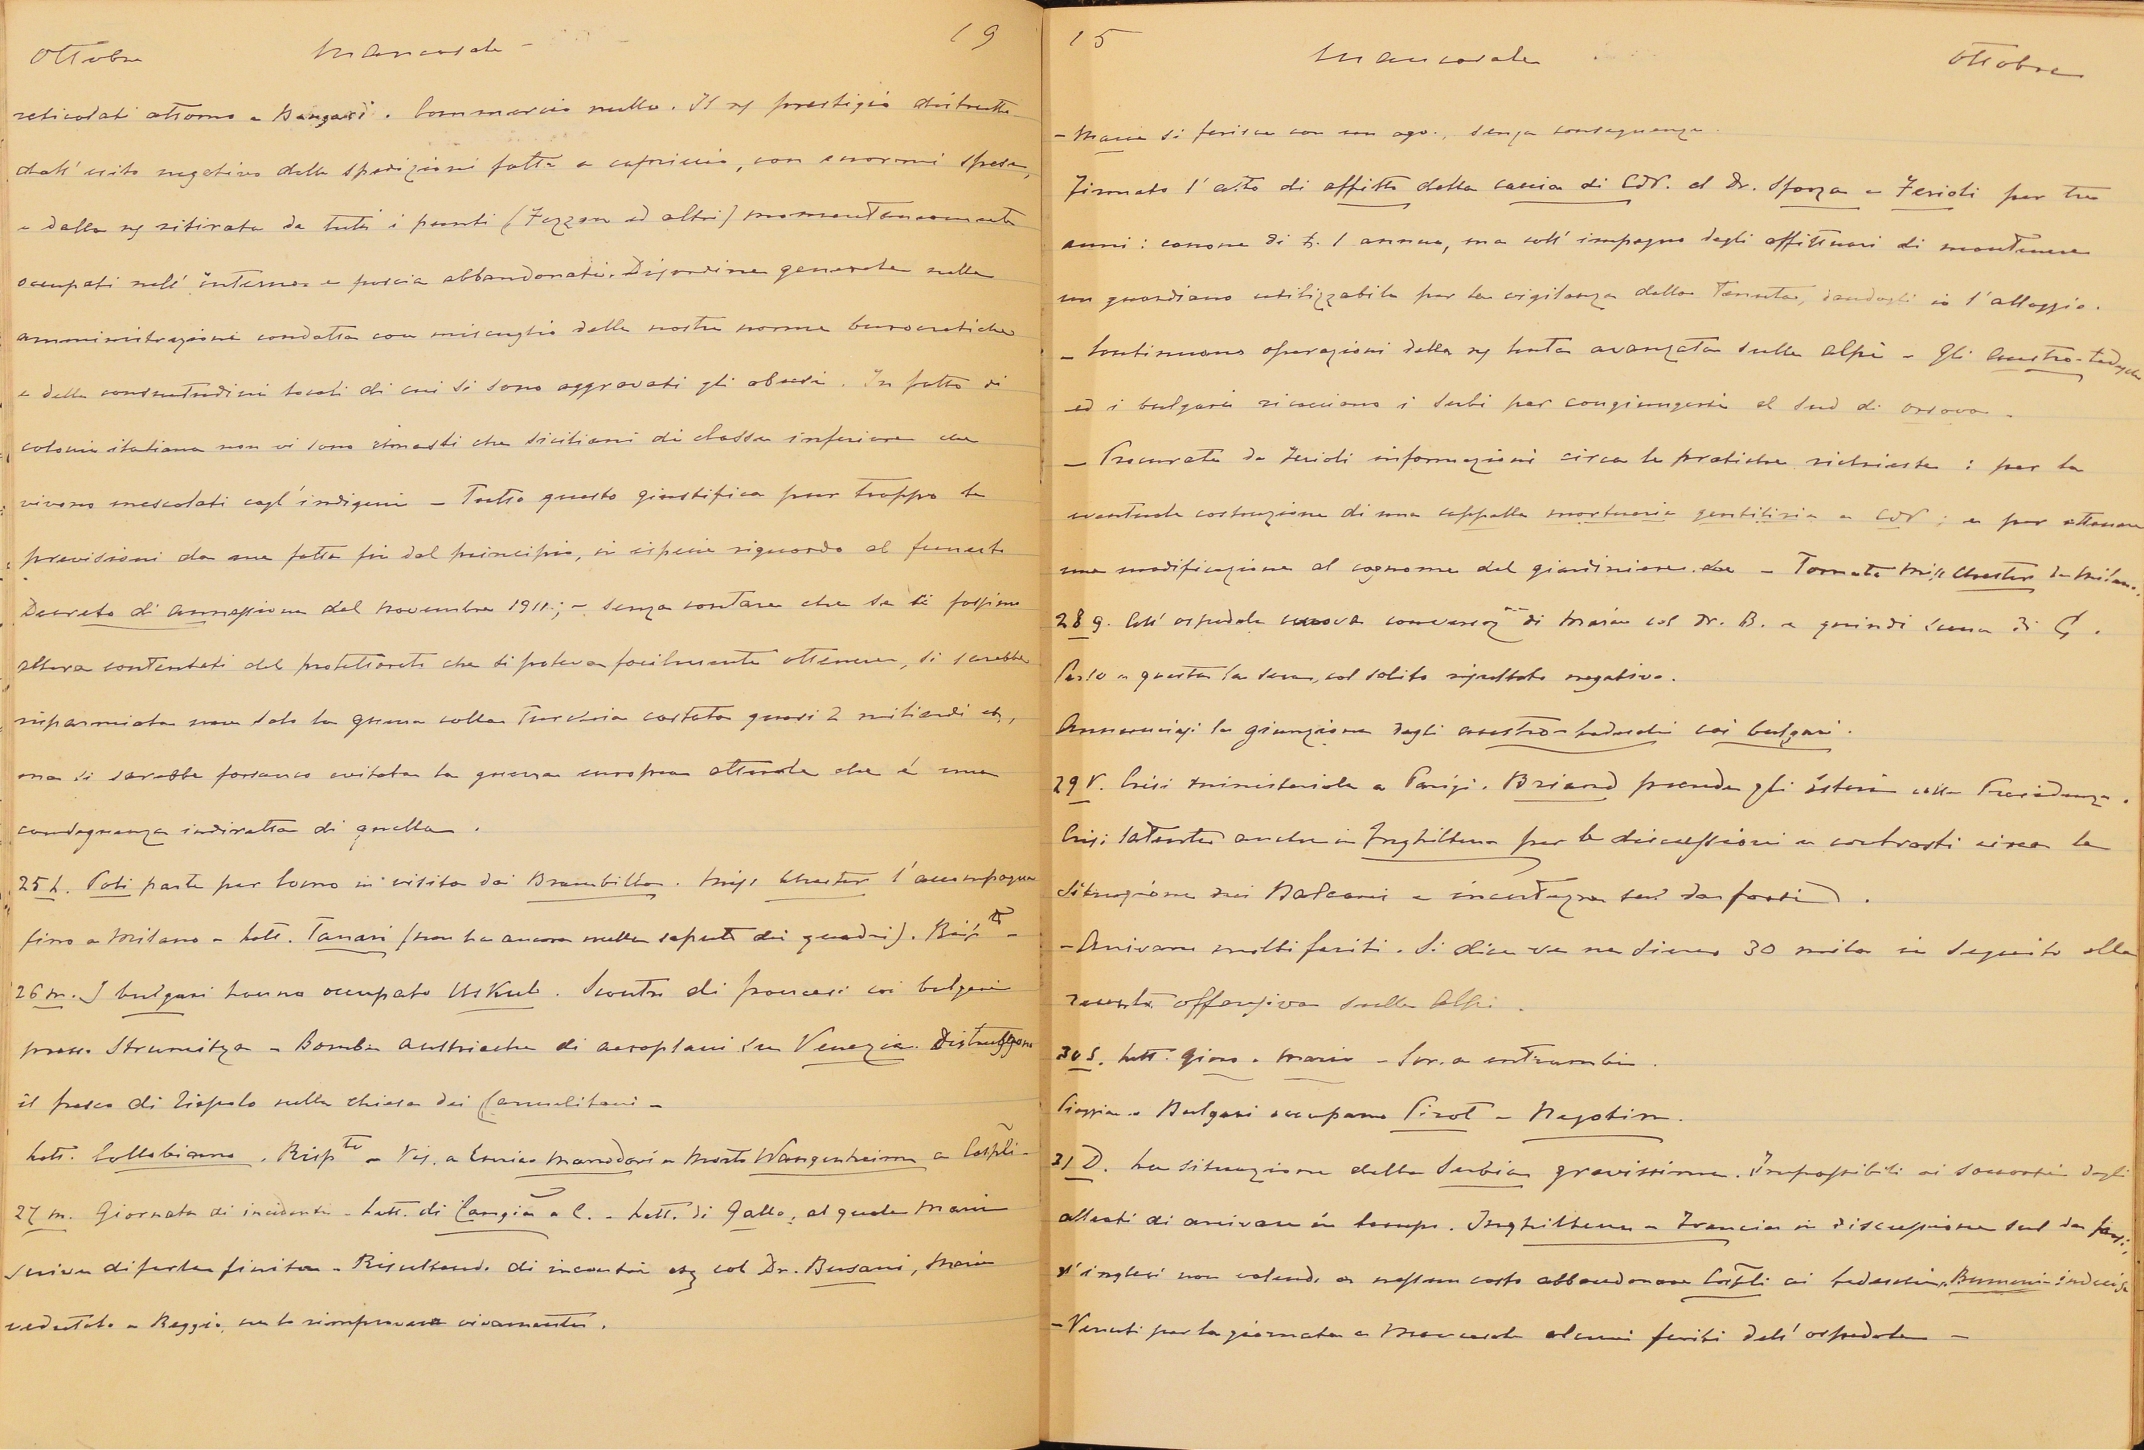 Ottobre Mancasale - 19
reticolati attorno a Bengasi. Commercio nullo. Il ns prestigio distrutto
dall' esito negativo delle spedizioni fatte a capriccio, con enormi spese,
e dalla ns ritirata da tutti i punti (Fezzan ed altri) momentaneamente
occupati nell' interno e poscia abbandonati. Disordine generale nella
amministrazione condotta con miscuglio delle nostre norme burocratiche
e delle consuetudini locali di cui si sono aggravati gli abusi. In fatto di
colonia italiana non vi sono rimasti che siciliani di classe inferiore che
vivono mescolati cogl' indigeni - Tutto questo giustifica pur troppo le
previsioni da me fatte fin dal principio, in ispecie riguardo al funesto
Decreto di annessione del novembre 1911; - senza contare che se si fossimo
allora contentati del protettorato che si poteva facilmente ottenere, si sarebbe
risparmiata non solo la guerra colla Turchia costata quasi 2 miliardi etc,
ma si sarebbe forsanco evitata la guerra europea attuale che è una
conseguenza indiretta di quella.
25 L. Poli parte per Como in visita dai Brambilla. Miss Chester l'accompagna
fino a Milano - Lett. Tanari (non ha ancora nulla saputo dei quadri). Risp.to -
26 M. I bulgari hanno occupato Uskub. Scontri di francesi coi bulgari
presso Strumitza - Bombe austriache di aeroplani su Venezia. Distruggono
il fresco di Tiepolo nella chiesa dei Carmelitani -
Lett. Collobiano. Risp.to - Vis. a Enrico Manodori - Morto Wangenheim a Cospli -
27 M. Giornata di incidenti - Lett. di Cangià a C. - Lett. di Gallo, al quale Maria
scrive di farla finita - Risultando di incontri etc col Dr. Busani, Maria
vedutolo a Reggio, ne lo rimprovera vivamente.
15 Mancasale Ottobre
- Maria si ferisce con un ago, senza conseguenze.
Firmato l'atto di affitto della caccia di CdV. al Dr. Sforza e Ferioli per tre
anni: canone di £. 1 annua, ma coll' impegno degli affittuari di mantenere
un guardiano utilizzabile per la vigilanza della Tenuta, dandogli io l'alloggio.
- Continuano operazioni della ns lenta avanzata sulle alpi - Gli Austro-tedeschi
ed i bulgari ricacciano i serbi per congiungersi al sud di Orsova -
- Procurate da Ferioli informazioni circa le pratiche richieste: per la
eventuale costruzione di una cappella mortuaria gentilizia a CdV; e per ottenere
una modificazione al cognome del giardiniere - Tornata Miss Chester da Milano.
28 G. All' ospedale nuova conversaz.ne di Maria col Dr. B. e quindi scena di G.
Parlo a questa la sera, col solito risultato negativo.
Annunciasi la giunzione degli austro-tedeschi coi bulgari.
29 V. Crisi ministeriale a Parigi. Briand prende gli Esteri colla Presidenza.
Crisi latente anche in Inghilterra per le discussioni e contrasti circa la
situazione dei Balcani e incertezza sul da farsi.
- Arrivano molti feriti. Si dice ve ne siano 30 mila in seguito alla
recente offensiva sulle Alpi.
30 S. Lett. Gino e Mario - Scr. a entrambi.
Pioggia - Bulgari occupano Pirot - Negotin.
31 D. La situazione della Serbia gravissima. Impossibile ai soccorsi degli
alleati di arrivare in tempo. Inghilterra e Francia in discussione sul da farsi,
gl'inglesi non volendo a nessun costo abbandonare Cospli ai tedeschi. Rumeni indecisi
- Venuti per la giornata a Mancasale alcuni feriti dell' ospedale -